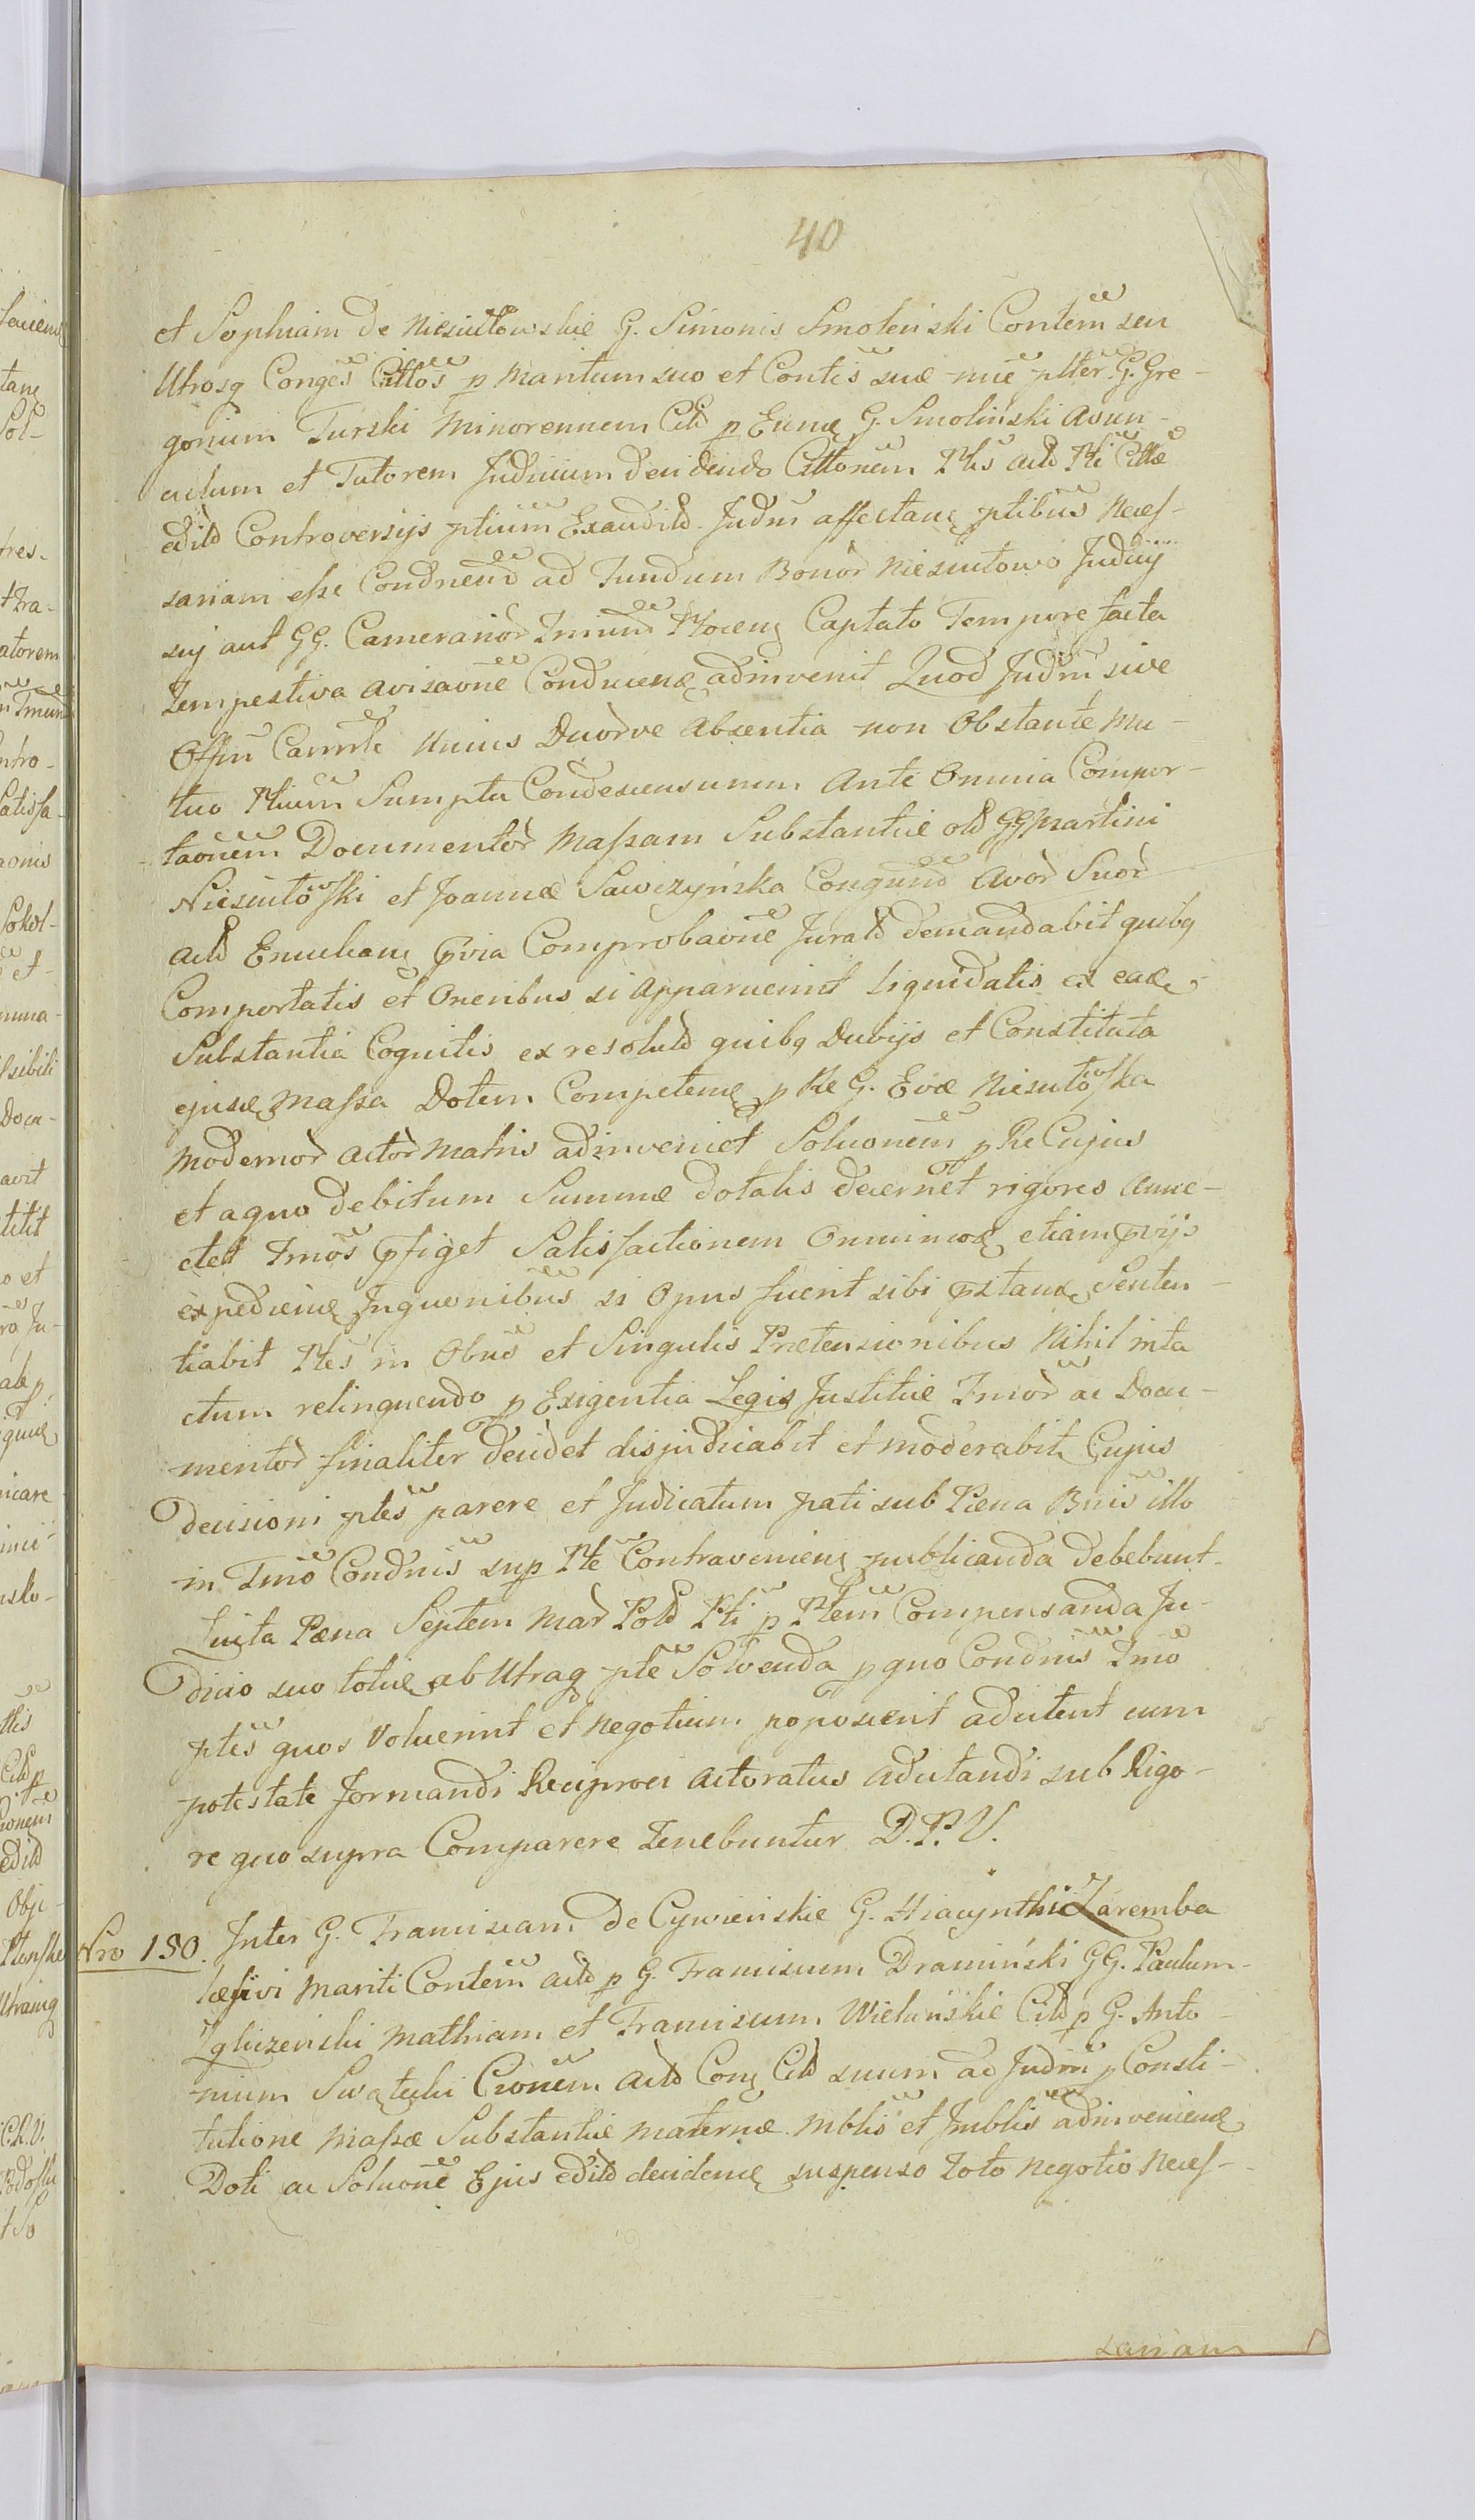 40
et Sophiam de Niesiułowskie G. Simonis Smolenski Contem seu
Utrosq Conges Cittos p Maritum suo et Contis suæ nie plter G. Gre-
gorium Turski Minorennem Citd p Eunæ G. Smolinski Avun-
culum et Tutorem Judicium decidendo Cittonem Ptis Actd Pti Cittæ
edild Controversijs ptium Exaudild. Judm affectane ptibus Neces-
sariam esse Condnend ad Fundum Bonor Niesiułowo Judicij
suj aut GG. Camerarior Tmium Ploceng Captato Tempore facta
Tempestiva avisaone Conducenæ adinvenit Quod Judm sive
Offm Camrle Unius Duorve Absentia non Obstante Mu-
tuo Ptium Sumptu Condescensurum Ante Omnia Compor-
taonem Documentor Massam Substantiæ old GG Martini
Niesiutowski et Joannæ Sawczyńska Congund Avor Suor
Actd Emuleang pvia Comprobaone Jurald demandabit quibq
Comportatis et Oneribus si Apparuerint Liquidatis ex eadæ
Substantia Cognitis ex resolutd quibq Dubijs et Constituta
ejusdæ Massa Dotem Competenæ p Re G. Evæ Niesiutowska
Modernor Actor Matris adinveniet Soluonem p Re Cujus
et a quo debitum Summæ dotalis decernet rigores Anne-
ctet Tmos pfiget Satisfactionem Omnimodæ etiam pvijs
expediene Inquonibus si Opus fuerit sibi pstandæ Senten-
tiabit Ptes in Obus et Singulis Prætensionibus Nihil inta
ctum relinquendo p Exigentia Legis Justitiæ Tmor ac Docu-
mentor finaliter decidet disjudicabit et moderabit Cujus
Decisioni ptes parere et Judicatum pati sub Pœna Bnis illo
in Tmo Condnis sup Pte Contravenieng publicanda debebunt.
Luita Pœna Septem Mar Pold Pti p Ptem Compensanda Ju-
dicio suo totiæ ab Utraq pte Solvenda p quo Condnis Tmo
ptes quos Voluerint et Negotium poposcerit adcitent cum
potestate formandi Reciproci Actoratus Adcitandi sub Rigo-
re quo supra Comparere Tenebuntur D.P.V.
Nro 180. Inter G. Franciscam De Cywieńskie G. Hiacynthi Zaremba
læsivi Mariti Contem Actd p G. Franciscum Dramiński GG. Paulum
Zgliczenski Mathiam et Franciscum Wieluńskie Citd p G. Anto-
nium Swątecki Cionem Actd Cong Citd suum ad Judm p Consti-
tutione Massæ Substantiæ Maternæ Mblis et Imblis adinvenienæ
Doti ac Soluone Ejus edild decidenæ suspenso Toto Negotio Neces-
sariam